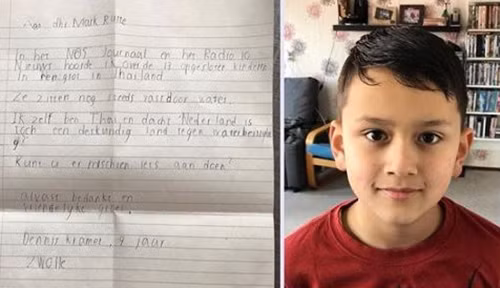 Aan dhr Mark Rutte
In het NOS Journaal en het Radio 10
Nieuws hoorde ik over de 13 opgesloten kinderen
in een grot in Thailand
Ze zitten nog steeds vast door water.
Ik zelf ben Thai en dacht Nederland is
toch een deskundig land tegen
Kunt u er misschien iets aan doen?
alvast bedankt en
vriendelijke groet,
Dennis Kramer, 9 jaar
Zwolle